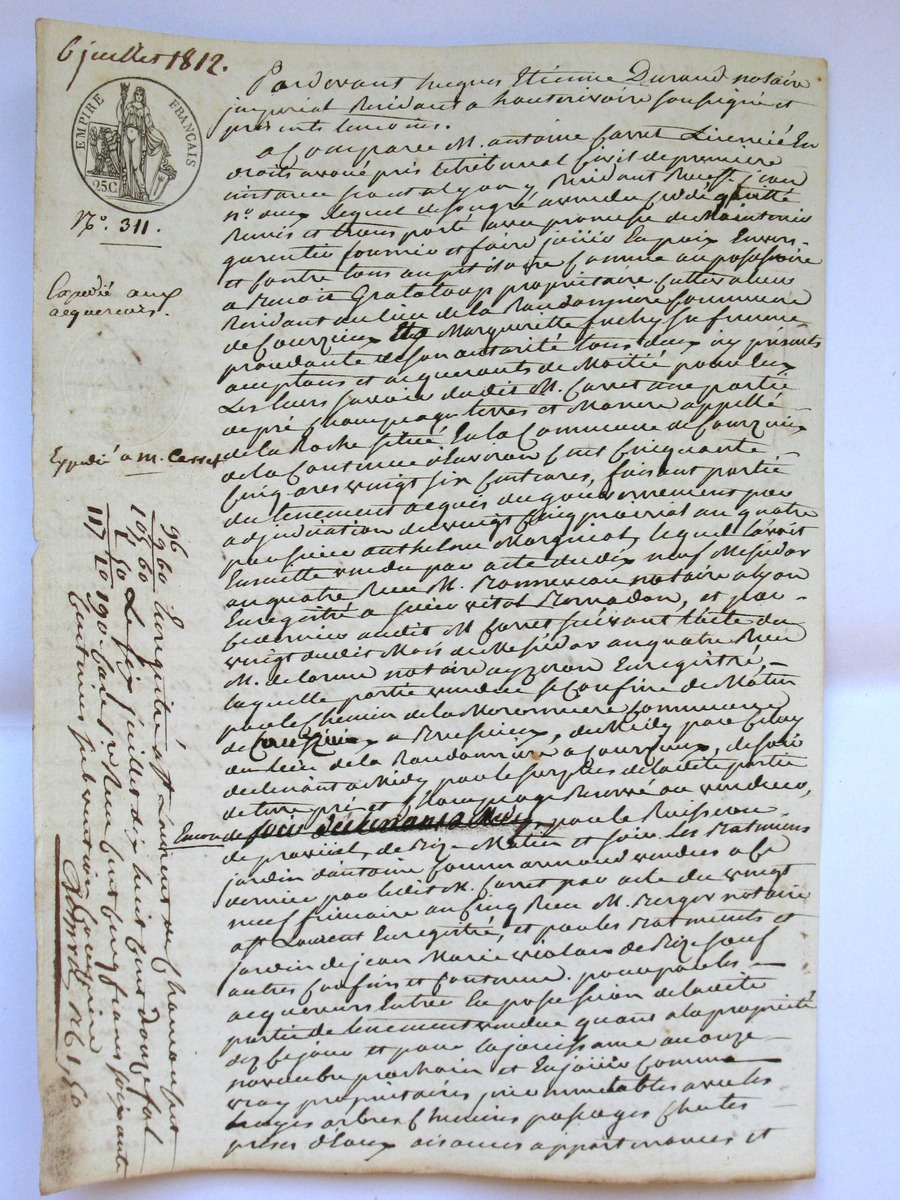 6 juillet 1812.
EMPIRE FRANÇAIS
25C
N.º 311.
Expedié aux
acquereurs.
Expedié a m. Carret
Pardevant Jacques Etienne Durand notaire
imperial Residant a hauterivoire soussigné et
presents temoins.
a Comparu M. antoine Carret Licencié En
droits avoué près le tribunal Civil de premiere
instance seant a Lyon y Residant Rue St jean
n.º deux lequel de son gré a vendu cedé quitté
Remis et transporté avec promesse de Maintenir
garentir fournir et faire jouir En paix Envers
et Contre tous au petitoire Comme au possessoire
a Benoit Grataloup proprietaire Cultivateur
Residant au lieu de la Randonniere Commune
de Courzieux Et a Marguerite sa femme
procedante de son autorité tous deux icy presents
acceptans et acquerants de Moitié pour Eux
Les leurs savoir dudit M. Carret une partie
de pré Champeage terres et appellé
de la Roche situé En la Commune de Courzieux
de la Contenue d'Environ Cent Cinquante
Cinq ares vingt six Centiares, faisant partie
du tenement acquis du gouvernement par
adjudication du vingt Cinq prairial an quatre
par sieur anthelme Marguiat, lequel l'avoit
Ensuitte vendu par acte du dix neuf Messidor
an quatre Reçu M. Bonnevaux notaire a Lyon
Enregistré a sieur vital , et par
ce dernier audit M. Carret suivant l'acte du
vingt dudit Mois de Messidor an quatre Reçu
M. delorme notaire a yzeron Enregistré,
laquelle partie vendue se Confine de Matin
par le Chemin de la Commune
de Courzieux a Bressieux, du Midy par Celuy
du lieu de la Randonniere a Courzieux, de soir
declinant a Midy par le surplus de ladite partie
de terre pré et Champeage Reservé au vendeur,
Encore de soir declinant a Midy par le Ruisseau
de , de Bize Matin et soir les Batiments
jardin d'antoine vendus a ce
dernier par ledit M. Carret par acte du vingt
neuf frimaire an Cinq Reçu M. Berger notaire
a St Laurent Enregistré, et par les Batiments et
jardin de jean Marie violan de Bize sauf
autres Confins et Contenue. pour par les
acquereurs Entrer En possession de ladite
partie de tenement vendue quant a la proprieté
dez Ce jour et pour la jouissance au onze
novembre prochain et En jouir Comme
vray proprietaires jncommutables avec les
hayes arbres Chemins passages Chutes
prises d'Eaux aisances appartenances et
96
9 60
105 60
50
117
Enregistré a St Laurent de Chamousset
Le six juillet dix huit cent douze fol
190 Case Reçu Cent Cinq francs soixante
Centimes subvention Comprise